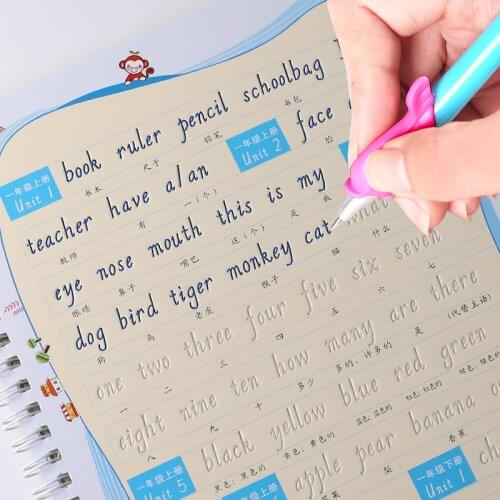 一年级上册
Unit 1
book ruler pencil schoolbag
书本 尺子 铅笔 书包
teacher have a/an
教师 有 一(个)
一年级上册
Unit 2
face
脸
eye nose mouth this is my
眼睛 鼻子 嘴巴 这(个) 是 我
dog bird tiger monkey cat what
狗 鸟 老虎 猴子 猫 什么
one two three four five six seven
一 二 三 四 五 六 七
eight nine ten how many are there
八 九 十 多少 多的;许多的 是 (代替主语)
一年级上册
Unit 5
black yellow blue red green
黑色;黑色的 黄色;黄色的 蓝色;蓝色的 红色;红色的 绿色;绿色的
apple pear banana
梨 香蕉
一年级下册
Unit 1
ch